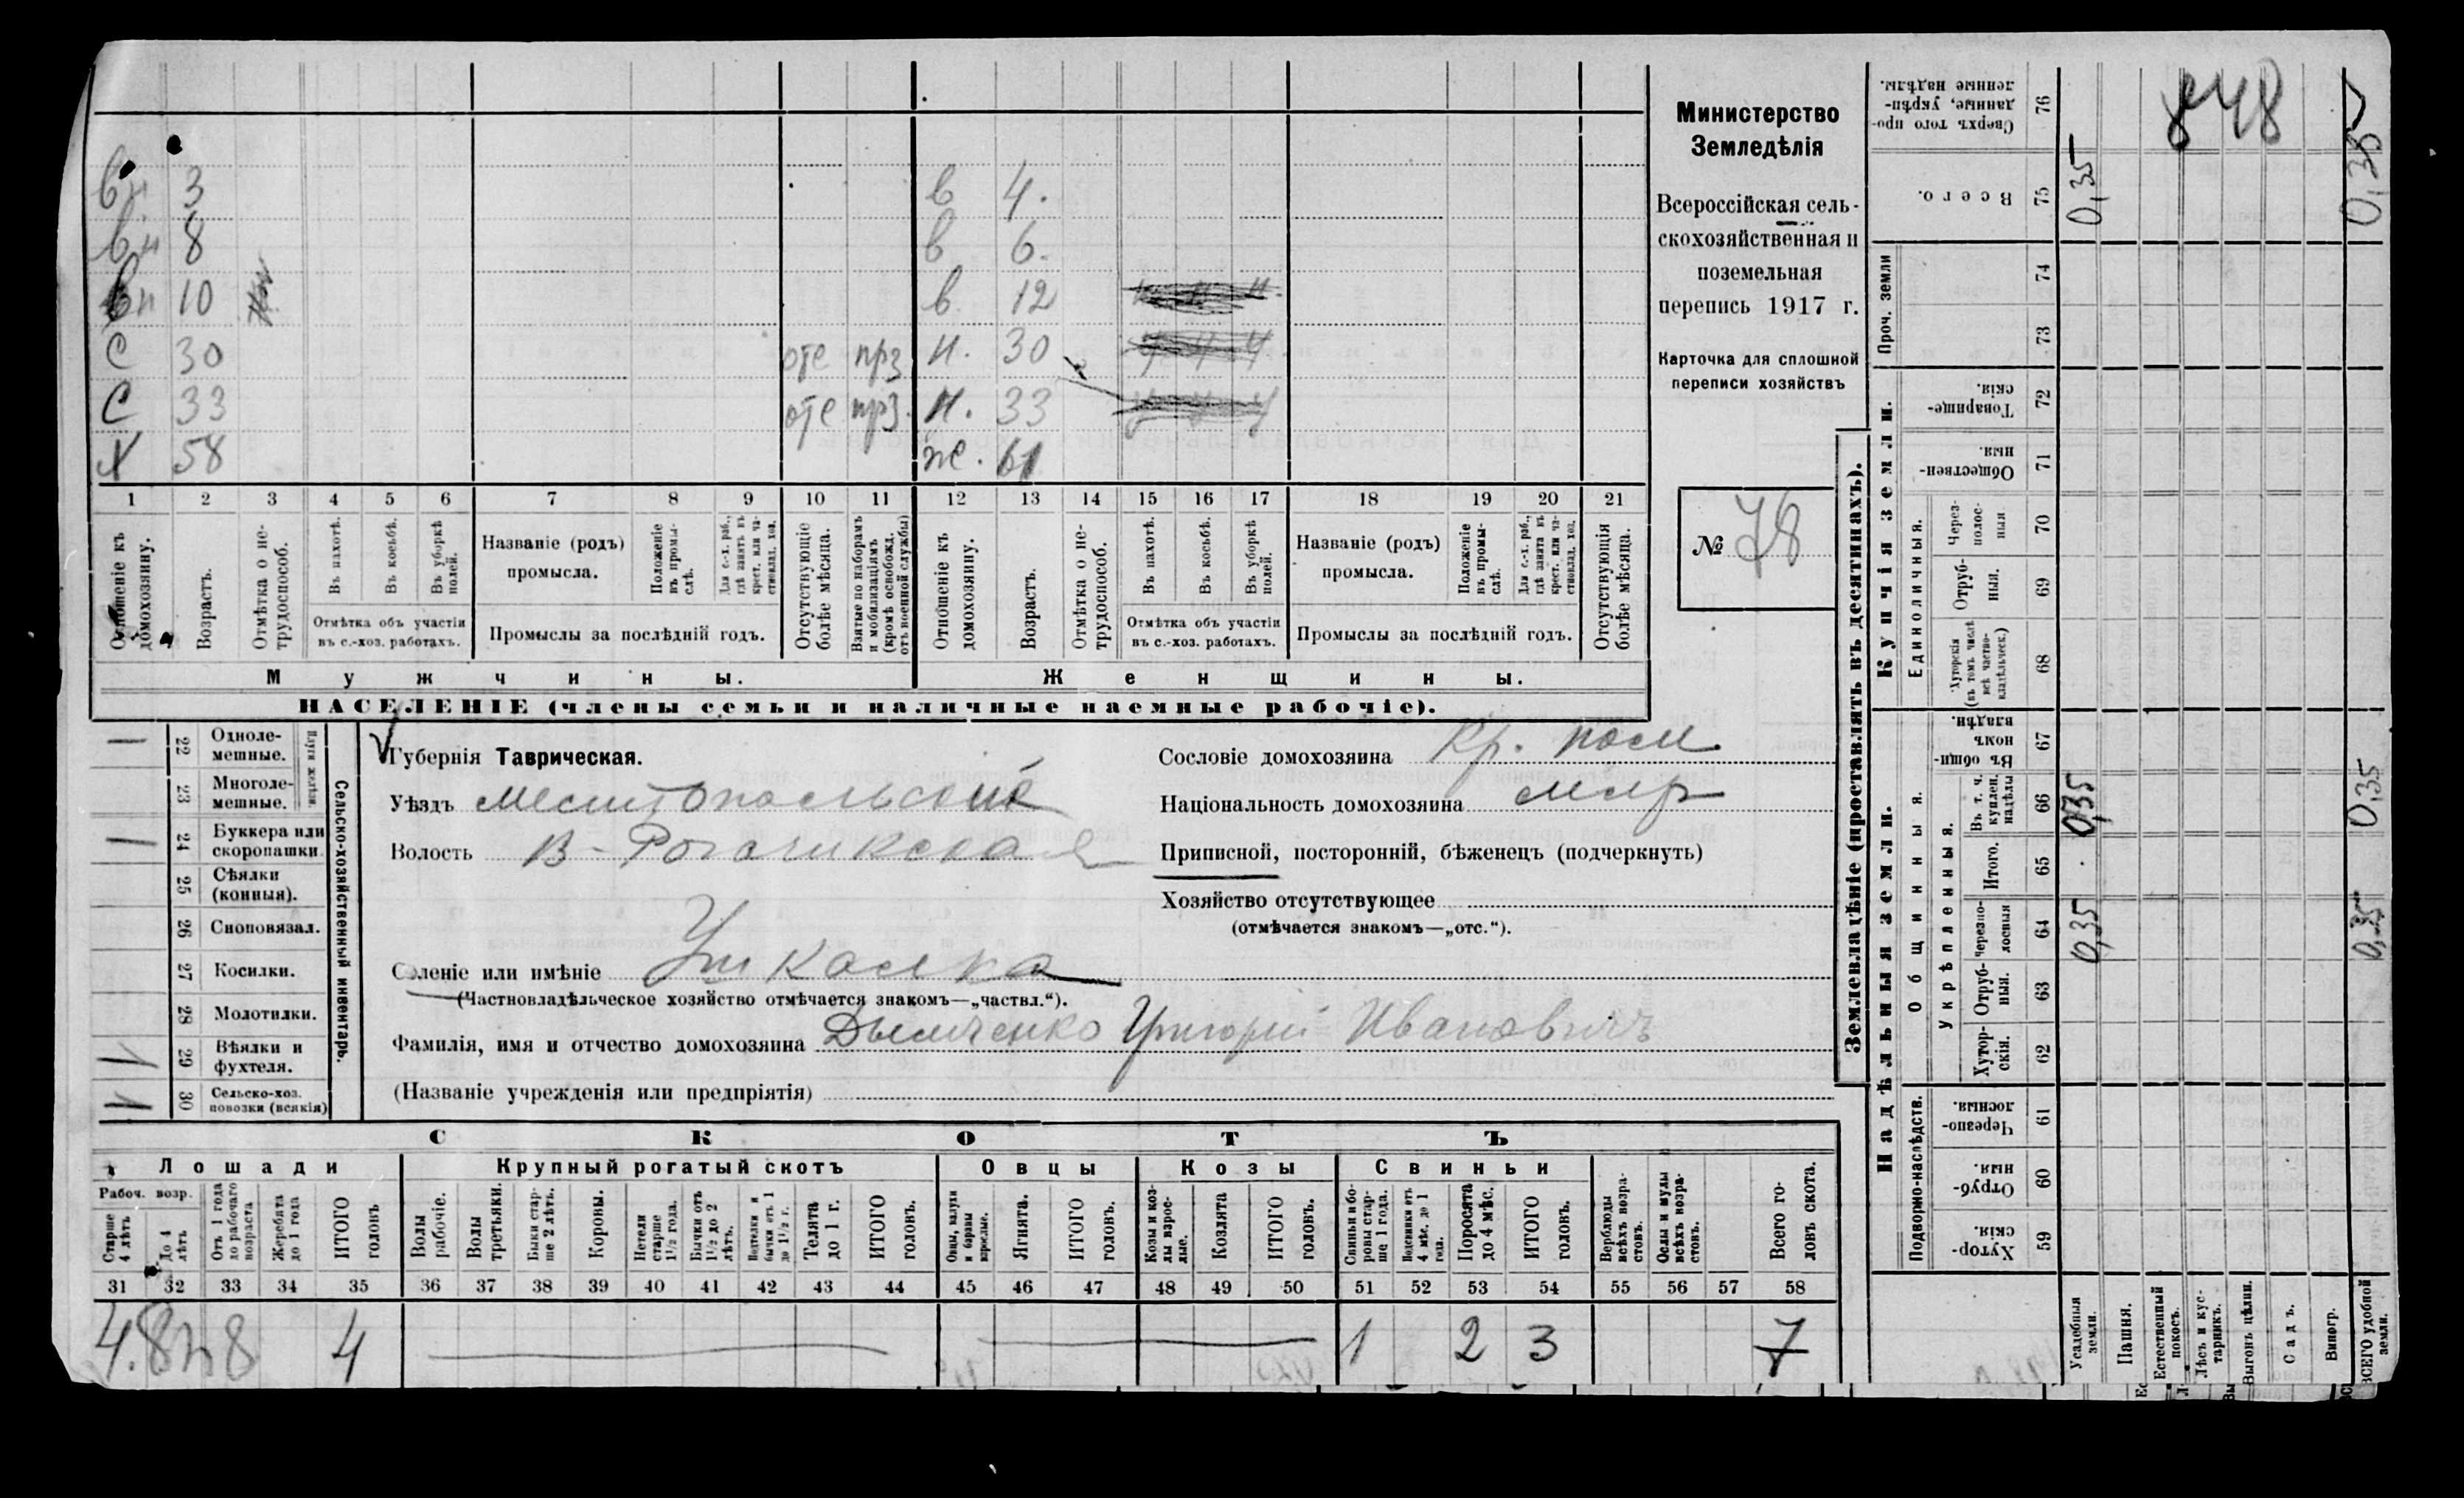 вн 3 в 4.
вн 8 в 6.
вн 10 в. 12
С 30 отс прз н. 30
С 33 отс прз. н. 33
Х 58 ж. 61
1 2 3 4 5 6 7 8 9 10 11 12 13 14 15 16 17 18 19 20 21
Отношеніе къ домохозяину.
Возрастъ.
Отмѣтка о не-трудоспособ.
Въ пахотѣ.
Въ косьбѣ.
Въ уборкѣ полей.
Отмѣтка объ участіи
въ с.-хоз. работахъ.
Названіе (родъ)
промысла.
Положеніе въ промы-слѣ.
Для с.-х. раб., гдѣ занятъ въ крест. или ча-стновлад. хоз.
Промыслы за послѣдній годъ.
Отсутствующіе болѣе мѣсяца.
Взятые по наборамъ и мобилизаціямъ (кромѣ освобожд. отъ военной службы)
Отношеніе къ домохозяину.
Возрастъ.
Отмѣтка о не-трудоспособ.
Въ пахотѣ.
Въ косьбѣ.
Въ уборкѣ полей.
Отмѣтка объ участіи
въ с.-хоз. работахъ.
Названіе (родъ)
промысла.
Положеніе въ промы-слѣ.
Для с.-х. раб., гдѣ занята въ крест. или ча-стновлад. хоз.
Промыслы за послѣдній годъ.
Отсутствующія болѣе мѣсяца.
Мужчины. Женщины.
НАСЕЛЕНІЕ (члены семьи и наличные наемные рабочіе).
Министерство
Земледѣлія
Всероссійская сель-
скохозяйственная и
поземельная
перепись 1917 г.
Карточка для сплошной
переписи хозяйствъ
№ 78
22 Одноле-мешные.
23 Многоле-мешные.
24 Буккера или скоропашки.
25 Сѣялки (конныя).
26 Сноповязал.
27 Косилки.
28 Молотилки.
29 Вѣялки и фухтеля.
30 Сельско-хоз. повозки (всякія)
Сельско-хозяйственный инвентарь.
Губернія Таврическая.
Уѣздъ Мелитопольскій
Волость В-Рогачикская
Селеніе или имѣніе Ушкалка
(Частновладѣльческое хозяйство отмѣчается знакомъ—„частвл.“).
Фамилія, имя и отчество домохозяина Дымченко Григорій Ивановичъ
(Названіе учрежденія или предпріятія)
Сословіе домохозяина Кр. посел.
Національность домохозяина млр
Приписной, посторонній, бѣженецъ (подчеркнуть)
Хозяйство отсутствующее
(отмѣчается знакомъ—„отс.“).
СКОТЪ
Лошади Крупный рогатый скотъ Овцы Козы Свиньи
Рабоч. возр.
Старше 4 лѣтъ
До 4 лѣтъ
Отъ 1 года до рабочаго возраста
Жеребята до 1 года
ИТОГО головъ
Волы рабочіе.
Волы третьяки.
Быки стар-ше 2 лѣтъ.
Коровы.
Нетели старше 1½ года.
Бычки отъ 1½ до 2 лѣтъ.
Нетелки и бычки отъ 1 до 1½ г.
Телята до 1 г.
ИТОГО головъ.
Овцы, валухи и бараны взрослые.
Ягнята.
ИТОГО головъ.
Козы и коз-лы взрос-лые.
Козлята
ИТОГО головъ.
Свиньи и бо-ровы стар-ше 1 года.
Подсвинки отъ 4 мѣс. до 1 года.
Поросята до 4 мѣс.
ИТОГО головъ.
Верблюды всѣхъ возра-стовъ.
Ослы и мулы всѣхъ возра-стовъ.
Всего го-ловъ скота.
31 32 33 34 35 36 37 38 39 40 41 42 43 44 45 46 47 48 49 50 51 52 53 54 55 56 57 58
4 1 2 3 7
Землевладѣніе (проставлять въ десятинахъ).
Надѣльныя земли. Купчія земли. Проч. земли
Подворно-наслѣдств.
Общинныя.
Укрѣпленныя.
Единоличныя.
Хутор-скія. 59
Отруб-ныя. 60
Черезпо-лосныя. 61
Хутор-скія. 62
Отруб-ныя. 63
Черезпо-лосныя 64 0,35 0,35
Итого. 65
Въ т. ч. куплен. надѣлы 66 0,35 0,35
Въ общин-номъ владѣн. 67
Хуторскія (въ томъ числѣ всѣ частно-владѣльческ.) 68
Отруб-ныя. 69
Через-полос-ныя 70
Обществен-ныя. 71
Товарище-скія. 72
73
74
Всего. 75 0,35 0,35
Сверхъ того про-данные, укрѣп-ленные надѣлы. 76
848
Усадебныя земли.
Пашня.
Естественный покосъ.
Лѣсъ и кус-тарникъ.
Выгонъ цѣлин.
Садъ.
Виногр.
ВСЕГО удобной земли.